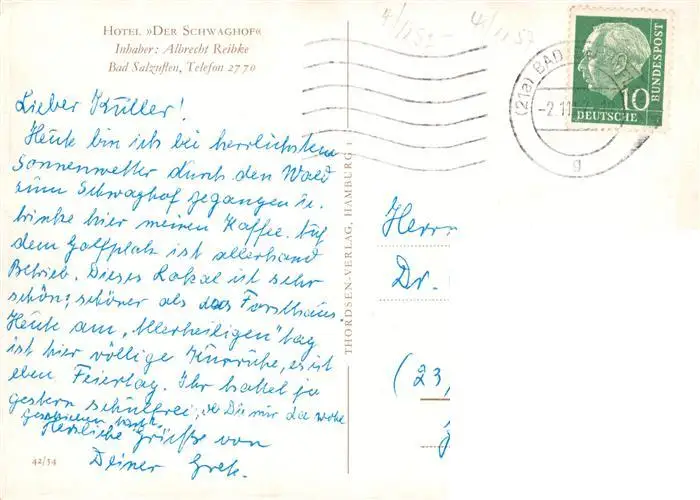 HOTEL »DER SCHWAGHOF«
Inhaber: Albrecht Reibke
Bad Salzuflen, Telefon 27 70
Lieber Küller!
Heute bin ich bei herrlichstem
Sonnenwetter durch den Wald
zum Schwaghof gegangen u.
trinke hier meinen Kaffee. Auf
dem Golfplatz ist allerhand
Betrieb. Dieses Lokal ist sehr
schön; schöner als das Forsthaus.
Heute am „Allerheiligen"tag
ist hier völlige Kurruhe, es ist
eben Feiertag. Ihr hattet ja
gestern schulfrei, ob Du mir da wohl
geschrieben hast?
Herzliche Grüße von
Deiner Grete.
42/54
THORDSEN-VERLAG, HAMBURG 1
4/11 57
(21a) BAD
-2.11
g
10
DEUTSCHE
BUNDESPOST
Herrn
Dr.
(23